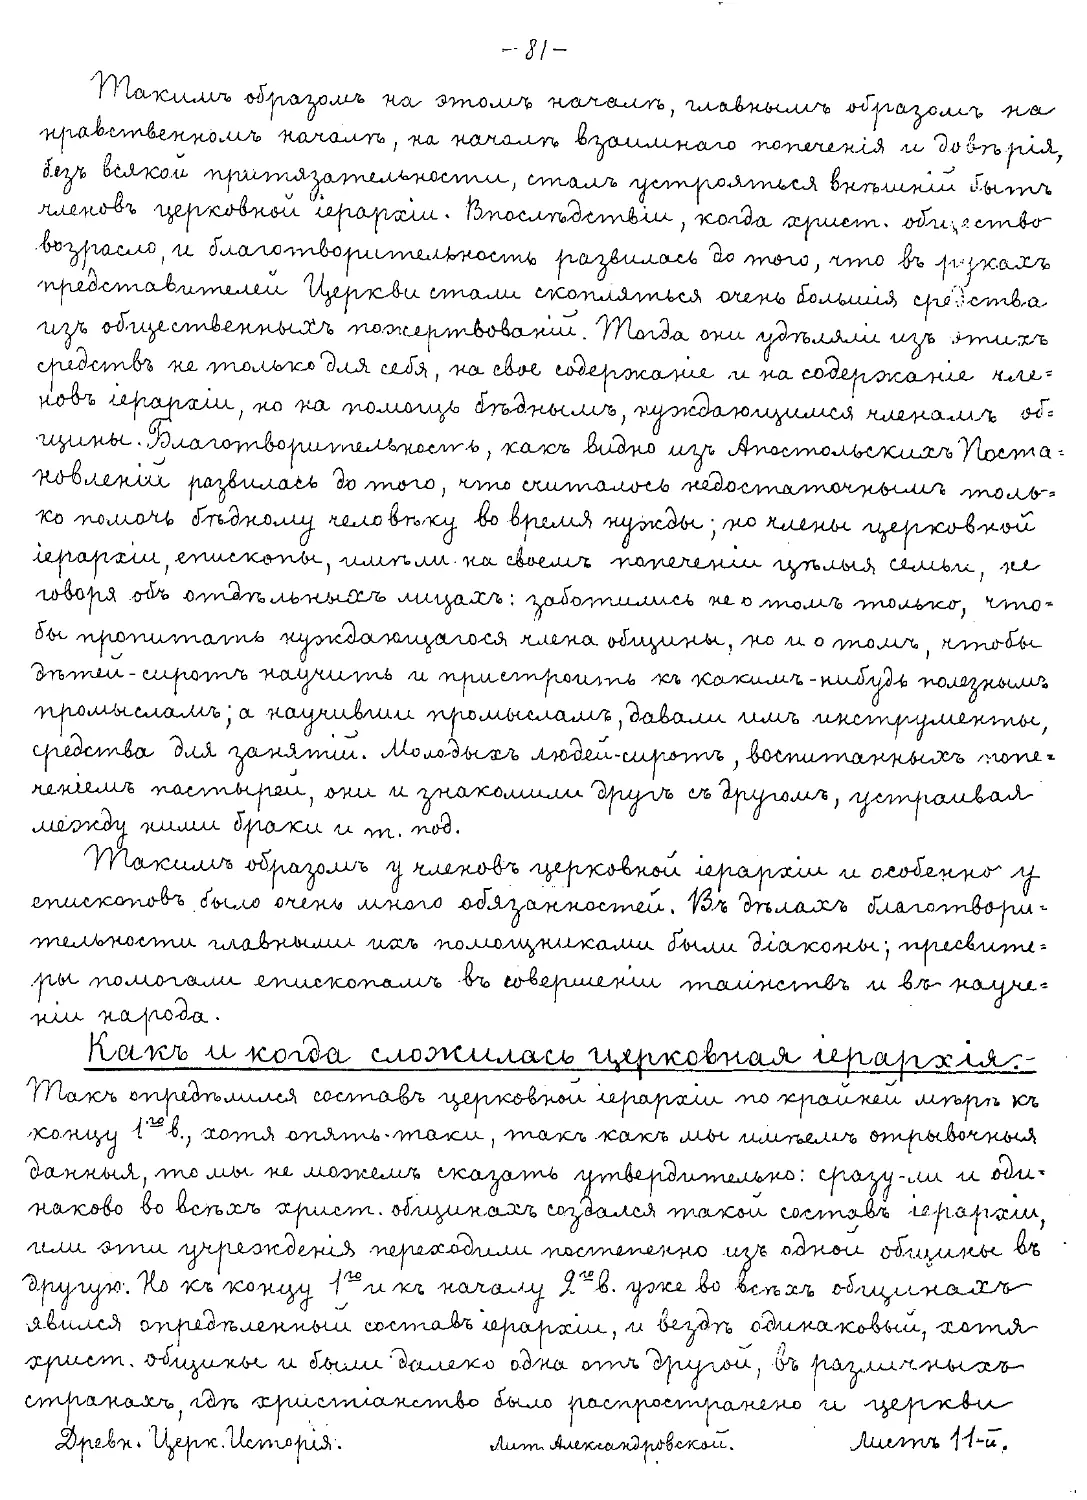 -81-
Такимъ образомъ на этомъ началѣ, главнымъ образомъ на
нравственномъ началѣ, на началѣ взаимнаго попеченія и довѣрія,
безъ всякой притязательности, сталъ устрояться внѣшній бытъ
членовъ церковной іерархіи. Впослѣдствіи, когда христ. общество
возрасло, и благотворительность развилась до того, что въ рукахъ
представителей Церкви стали скопляться очень большія средства
изъ общественныхъ пожертвованій. Тогда они удѣляли изъ этихъ
средствъ не только для себя, на свое содержаніе и на содержаніе чле=
новъ іерархіи, но на помощь бѣднымъ, нуждающимся членамъ об=
щины. Благотворительность, какъ видно изъ Апостольскихъ Поста=
новленій развилась до того, что считалось недостаточнымъ толь=
ко помочь бѣдному человѣку во время нужды; но члены церковной
іерархіи, епископы, имѣли на своемъ попеченіи цѣлыя семьи, не
говоря объ отдѣльныхъ лицахъ: заботились не о томъ только, что=
бы пропитать нуждающагося члена общины, но и о томъ, чтобы
дѣтей-сиротъ научить и пристроить къ какимъ-нибудь полезнымъ
промысламъ; а научивши промысламъ, давали имъ инструменты,
средства для занятій. Молодыхъ людей-сиротъ, воспитанныхъ попе=
ченіемъ пастырей, они и знакомили другъ съ другомъ, устраивая
между ними браки и т. под.
Такимъ образомъ у членовъ церковной іерархіи и особенно у
епископовъ было очень много обязанностей. Въ дѣлахъ благотвори=
тельности главными ихъ помощниками были діаконы; пресвите=
ры помогали епископамъ въ совершеніи таинствъ и въ науче=
ніи народа.
Какъ и когда сложилась церковная іерархія.-
Такъ опредѣлился составъ церковной іерархіи по крайней мѣрѣ къ
концу 1го в., хотя опять-таки, такъ какъ мы имѣемъ отрывочныя
данныя, то мы не можемъ сказать утвердительно: сразу-ли и оди=
наково во всѣхъ христ. общинахъ создался такой составъ іерархіи,
или эти учрежденія переходили постепенно изъ одной общины въ
другую. Но къ концу 1го и къ началу 2го в. уже во всѣхъ общинахъ
явился опредѣленный составъ іерархіи, и вездѣ одинаковый, хотя
христ. общины и были далеко одна отъ другой, въ различныхъ
странахъ, гдѣ христіанство было распространено и церкви
Древн. Церк. Исторія. Лит. Александровской. Листъ 11-й.